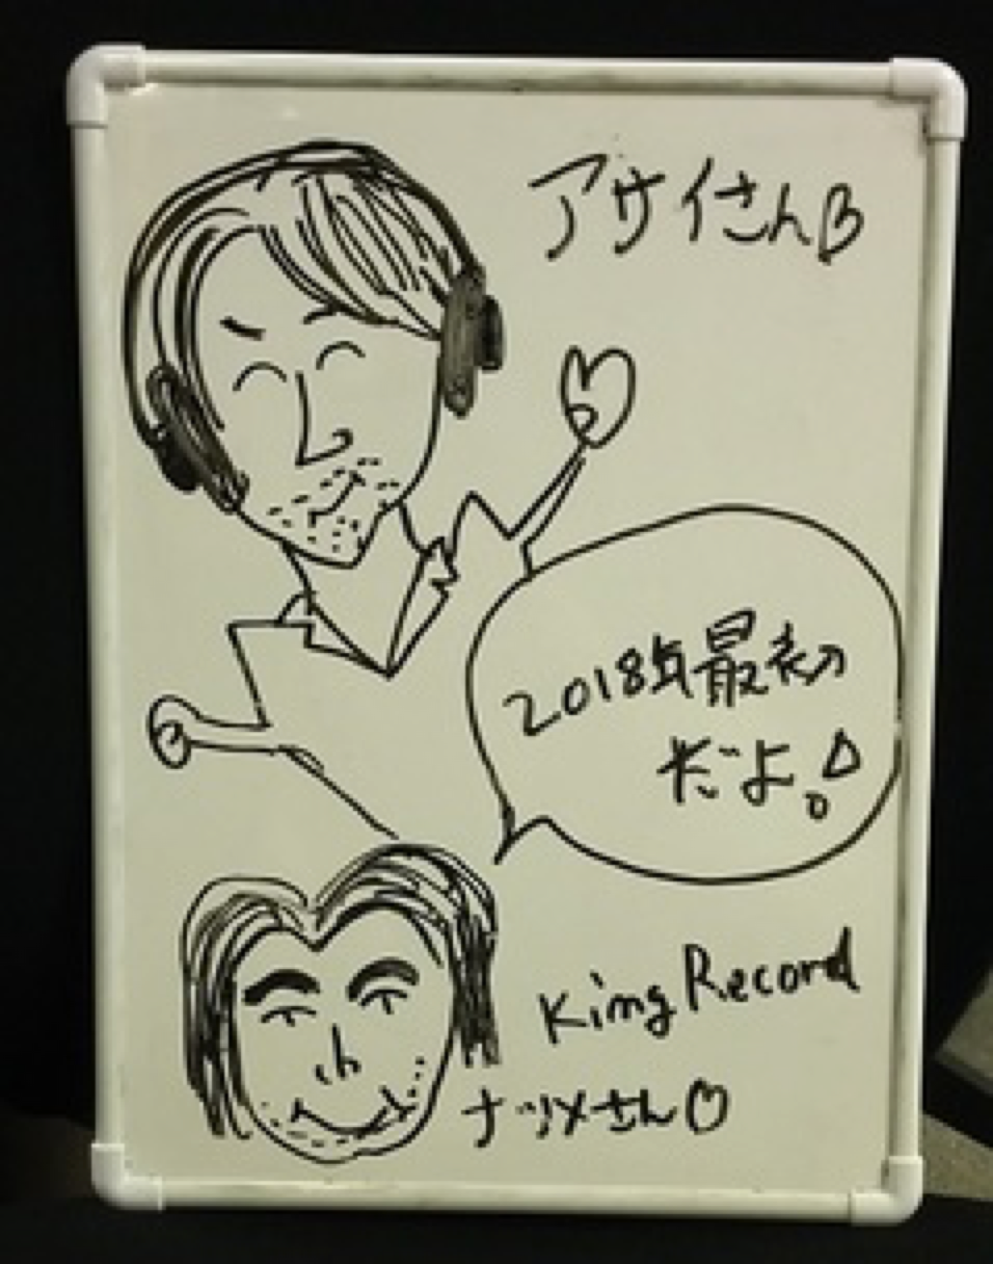 アサイさん♡
2018年最初
だよ。!
King Record
ナツメさん♡